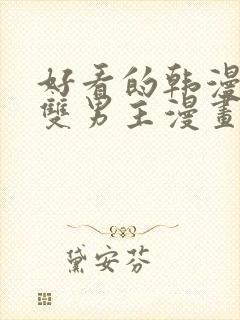 好看的韩漫
雙男主漫畫
黛安芬